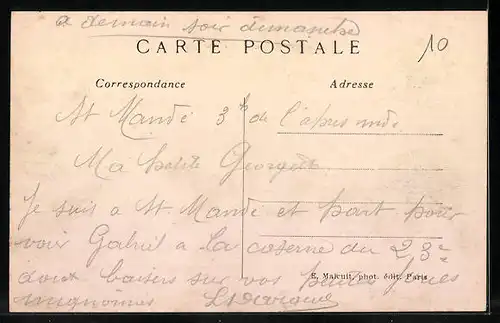 a demain soir dimanche
CARTE POSTALE
10
Correspondance
Adresse
St Mandé 3 h de l'apres midi
Ma petite Georgette
Je suis a St Mandé et part pour
voir Gabriel a la caserne du 23e
doux baisers sur vos petites joues
mignonnes
E. Malcuit, phot. édit. Paris